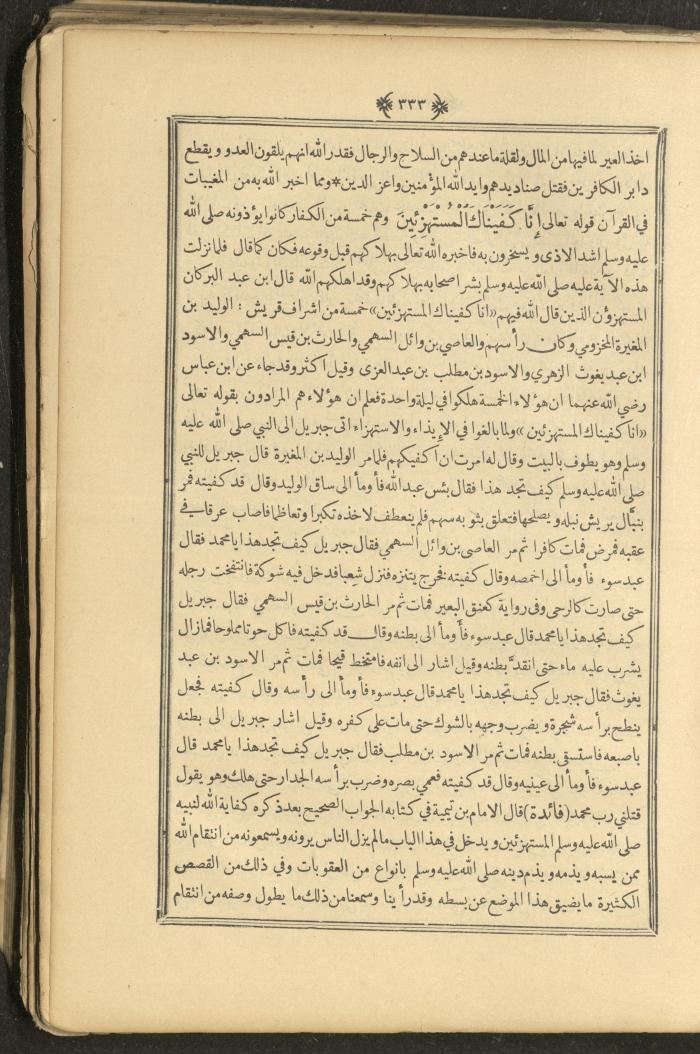 ٣٣٣
اخذ العير لما فيها من المال ولقلة ما عندهم من السلاح والرجال فقدر الله انهم يلقون العدو ويقطع
دابر الكافرين فقتل صناديدهم وايد الله المؤمنين واعز الدين*ومما اخبر الله به من المغيبات
في القرآن قوله تعالى إِنَّا كَفَيْنَاكَ الْمُسْتَهْزِئِينَ وهم خمسة من الكفار كانوا يؤذونه صلى الله
عليه وسلم اشد الاذى ويسخرون به فاخبره الله تعالى بهلاكهم قبل وقوعه فكان كما قال فلما نزلت
هذه الآية عليه صلى الله عليه وسلم بشر اصحابه بهلاكهم وقد اهلكهم الله قال ابن عبد البر كان
المستهزؤن الذين قال الله فيهم «انا كفيناك المستهزئين» خمسة من اشراف قريش : الوليد بن
المغيرة المخزومي وكان رأسهم والعاصي بن وائل السهمي والحارث بن قيس السهمي والاسود
ابن عبد يغوث الزهري والاسود بن مطلب بن عبد العزى وقيل اكثر وقد جاء عن ابن عباس
رضي الله عنهما ان هؤلاء الخمسة هلكوا في ليلة واحدة فعلم ان هؤلاء هم المرادون بقوله تعالى
«انا كفيناك المستهزئين» ولما بالغوا في الايذاء والاستهزاء اتى جبريل الى النبي صلى الله عليه
وسلم وهو يطوف بالبيت وقال له امرت ان اكفيكهم فلما مر الوليد بن المغيرة قال جبريل للنبي
صلى الله عليه وسلم كيف تجد هذا فقال بئس عبد الله فأومأ الى ساق الوليد وقال قد كفيته فمر
بنبَّال يريش نبله ويصلحها فتعلق بثوبه سهم فلم ينعطف لاخذه تكبرا وتعاظما فاصاب عرقا في
عقبه فمرض فمات كافرا ثم مر العاصي بن وائل السهمي فقال جبريل كيف تجد هذا يا محمد فقال
عبد سوء فأومأ الى اخمصه وقال كفيته فخرج يتنزه فنزل شعبا فدخل فيه شوكة فانتفخت رجله
حتى صارت كالرحى وفي رواية كعنق البعير فمات ثم مر الحارث بن قيس السهمي فقال جبريل
كيف تجد هذا يا محمد قال عبد سوء فأومأ الى بطنه وقال قد كفيته فاكل حوتا مملوحا فما زال
يشرب عليه ماء حتى انقدَّ بطنه وقيل اشار الى انفه فامتخط قيحا فمات ثم مر الاسود بن عبد
يغوث فقال جبريل كيف تجد هذا يا محمد قال عبد سوء فأومأ الى رأسه وقال كفيته فجعل
ينطح برأسه شجرة ويضرب وجهه بالشوك حتى مات على كفره وقيل اشار جبريل الى بطنه
باصبعه فاستسقى بطنه فمات ثم مر الاسود بن مطلب فقال جبريل كيف تجد هذا يا محمد قال
عبد سوء فأومأ الى عينيه وقال قد كفيته فعمي بصره وضرب برأسه الجدار حتى هلك وهو يقول
قتلني رب محمد (فائدة) قال الامام بن تيمية في كتابه الجواب الصحيح بعد ذكره كفاية الله لنبيه
صلى الله عليه وسلم المستهزئين ويدخل في هذا الباب ما لم يزل الناس يرونه ويسمعونه من انتقام الله
ممن يسبه ويذمه ويذم دينه صلى الله عليه وسلم بانواع من العقوبات وفي ذلك من القصص
الكثيرة ما يضيق هذا الموضع عن بسطه وقد رأينا وسمعنا من ذلك ما يطول وصفه من انتقام